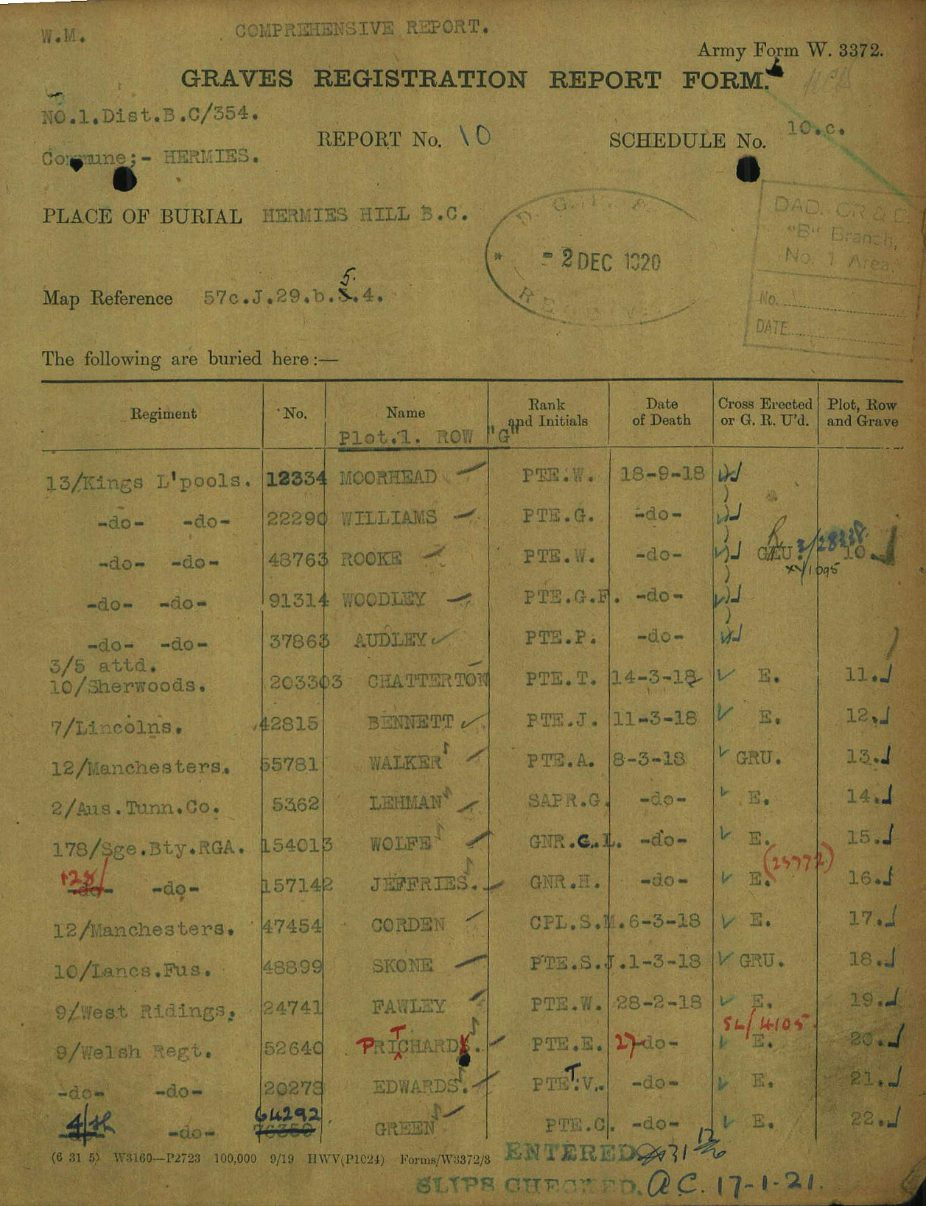 W.M. COMPREHENSIVE REPORT.
Army Form W. 3372.
GRAVES REGISTRATION REPORT FORM.
NO.1.Dist.B.C/354.
REPORT No. 10 SCHEDULE No. 10.c.
Commune;- HERMIES.
PLACE OF BURIAL HERMIES HILL B.C.
D. G. R. & E.
* - 2 DEC 1920
RECEIVED
DAD. GR & E.
"B" Branch,
No. 1 Area.
No.
DATE
Map Reference 57c.J.29.b.5.4.
The following are buried here:—
Regiment No. Name Rank and Initials Date of Death Cross Erected or G. R. U'd. Plot, Row and Grave
Plot.1. ROW "G"
13/Kings L'pools. 12334 MOORHEAD PTE.W. 18-9-18
-do- -do- 22290 WILLIAMS PTE.G. -do-
-do- -do- 48763 ROOKE PTE.W. -do- GRU. 3/28338 10.
XY/1095
-do- -do- 91314 WOODLEY PTE.G.F. -do-
-do- -do- 37863 AUDLEY PTE.P. -do-
3/5 attd.
10/Sherwoods. 203303 CHATTERTON PTE.T. 14-3-18 E. 11.
7/Lincolns. 42815 BENNETT PTE.J. 11-3-18 E. 12.
12/Manchesters. 55781 WALKER PTE.A. 8-3-18 GRU. 13.
2/Aus.Tunn.Co. 5362 LEHMAN SAPR.G. -do- E. 14.
178/Sge.Bty.RGA. 154013 WOLFE GNR.G.L. -do- E. 15.
128/ -do- -do- 157142 JEFFRIES. GNR.H. -do- E. (25972) 16.
12/Manchesters. 47454 CORDEN CPL.S.M. 6-3-18 E. 17.
10/Lancs.Fus. 48899 SKONE PTE.S.J. 1-3-18 GRU. 18.
9/West Ridings. 24741 FAWLEY PTE.W. 28-2-18 E. 19.
SL/4105.
9/Welsh Regt. 52640 PRITCHARD. PTE.E. 27 -do- E. 20.
-do- -do- 20278 EDWARDS. PTE.T.V. -do- E. 21.
4/th -do- 64292 76350 GREEN PTE.C. -do- E. 22.
(6 31 5) W3160—P2723 100,000 9/19 HWV(P1024) Forms/W3372/3 ENTERED 31/12/20
SLIPS CHECKED. A.C. 17-1-21.